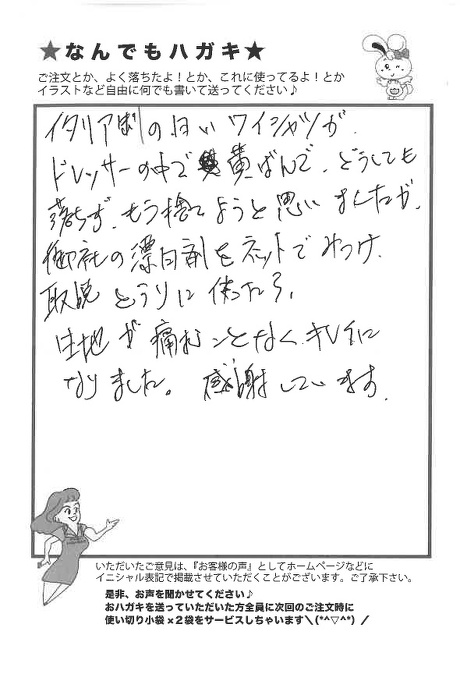 ★なんでもハガキ★
ご注文とか、よく落ちたよ！とか、これに使ってるよ！とか
イラストなど自由に何でも書いて送ってください♪
イタリア製の白いワイシャツが、
ドレッサーの中で黄ばんで、どうしても
落ちず、もう捨てようと思いましたが、
御社の漂白剤をネットでみつけ、
取説とうりに使ったら、
生地が痛むことなくキレイに
なりました。感謝しています。
いただいたご意見は、『お客様の声』としてホームページなどに
イニシャル表記で掲載させていただくことがございます。ご了承下さい。
是非、お声を聞かせてください♪
おハガキを送っていただいた方全員に次回のご注文時に
使い切り小袋×２袋をサービスしちゃいます＼(*^▽^*) ／